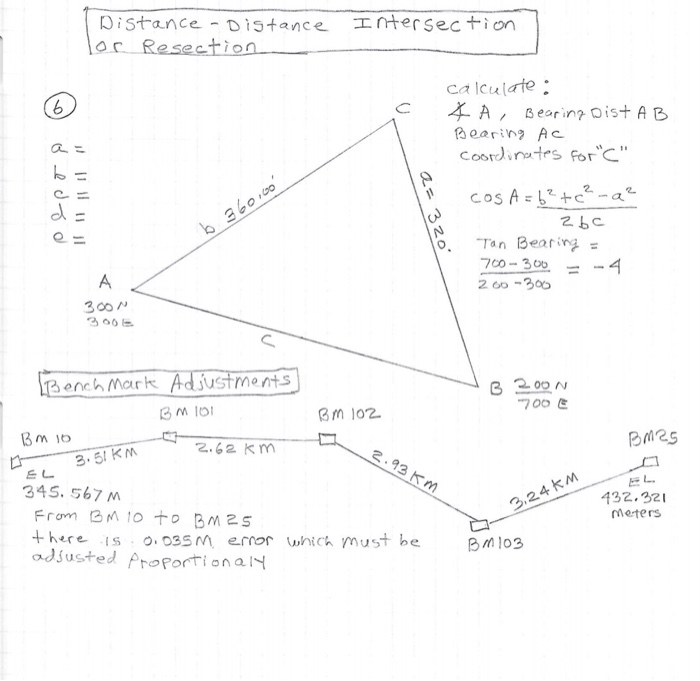 Distance - Distance Intersection
or Resection
6
calculate:
∡ A, Bearing Dist AB
Bearing AC
coordinates for "C"
a =
b =
c =
d =
e =
C
b 360.00'
a = 320'
cos A = b² + c² - a²
2bc
Tan Bearing =
700 - 300 = -4
200 - 300
A
300 N
300 E
C
B 200 N
700 E
Bench Mark Adjustments
BM 10
BM 101
BM 102
BM25
3.51 KM
2.62 KM
2.93 KM
3.24 KM
EL
345.567 M
EL
432.321
meters
From BM 10 to BM 25
there is 0.035M error which must be
adjusted Proportionaly
BM103